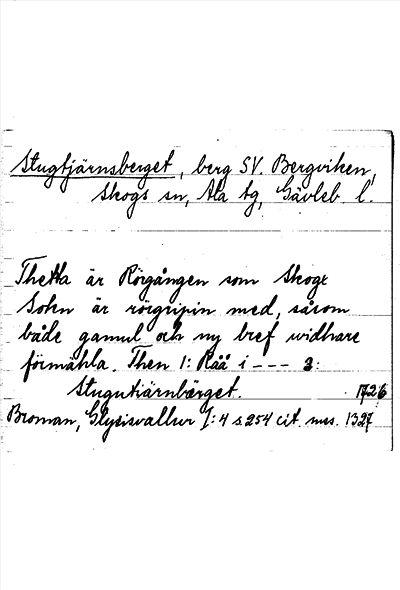 Stugtjärnsberget, berg SV. Bergviken,
Skogs sn, Ala tg, Gävleb l.
Thetta är Rörgången som Skogz
Sokn är rörgripin med, såsom
både gamul och ny bref widhare
förmähla. Then 1: Råå i --- 3:
Stugutiärnbärget. 1726
Broman, Glysisvallur I:4 s. 254 cit. mes. 1327